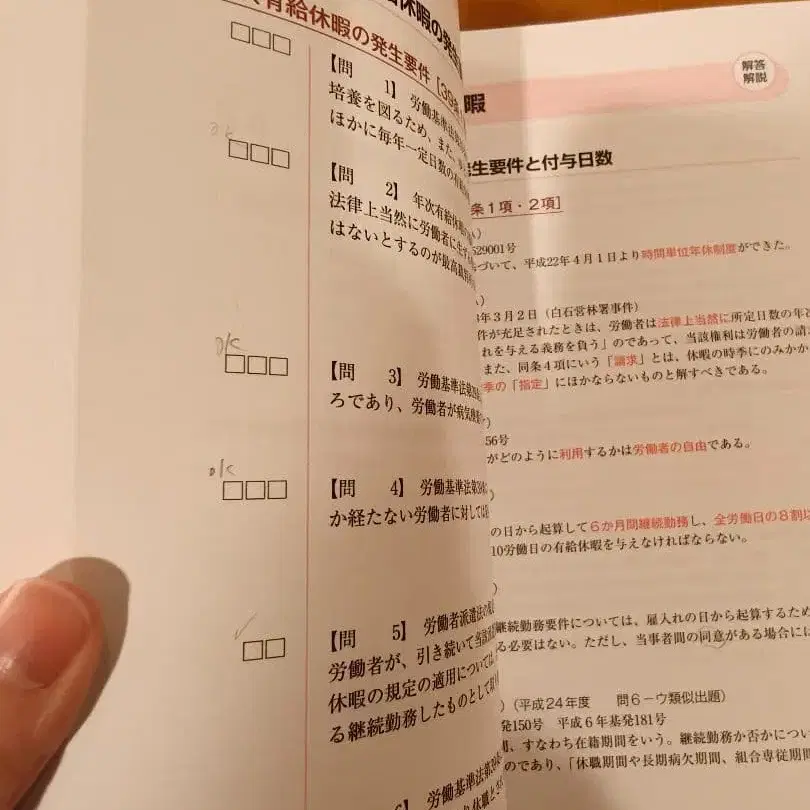 有給休暇の発生要件 [39条
【問 1】 労働基準法第
培養を図るため、また、
ほかに毎年一定日数の有給
ok
【問 2】 年次有給休暇
法律上当然に労働者に生
はないとするのが最高裁
ok
【問 3】 労働基準法第39条
ろであり、労働者が病気
ok
【問 4】 労働基準法第39条
か経たない労働者に対しては
【問 5】 労働者派遣法の
労働者が、引き続いて当該
休暇の規定の適用については
る継続勤務したものとして
労働基準法第39条
解答
解説
暇
生要件と付与日数
条1項・2項]
529001号
づいて、平成22年4月1日より時間単位年休制度ができた。
年3月2日(白石営林署事件)
件が充足されたときは、労働者は法律上当然に所定日数の年
れを与える義務を負う」のであって、当該権利は労働者の請
また、同条4項にいう「請求」とは、休暇の時季にのみかか
季の「指定」にほかならないものと解すべきである。
56号
がどのように利用するかは労働者の自由である。
の日から起算して6か月間継続勤務し、全労働日の8割以
10労働日の有給休暇を与えなければならない。
継続勤務要件については、雇入れの日から起算するため
る必要はない。ただし、当事者間の同意がある場合には
(平成24年度 問6-ウ類似出題)
発150号 平成6年基発181号
、すなわち在籍期間をいう。継続勤務か否かについ
のであり、「休職期間や長期病欠期間、組合専従期間